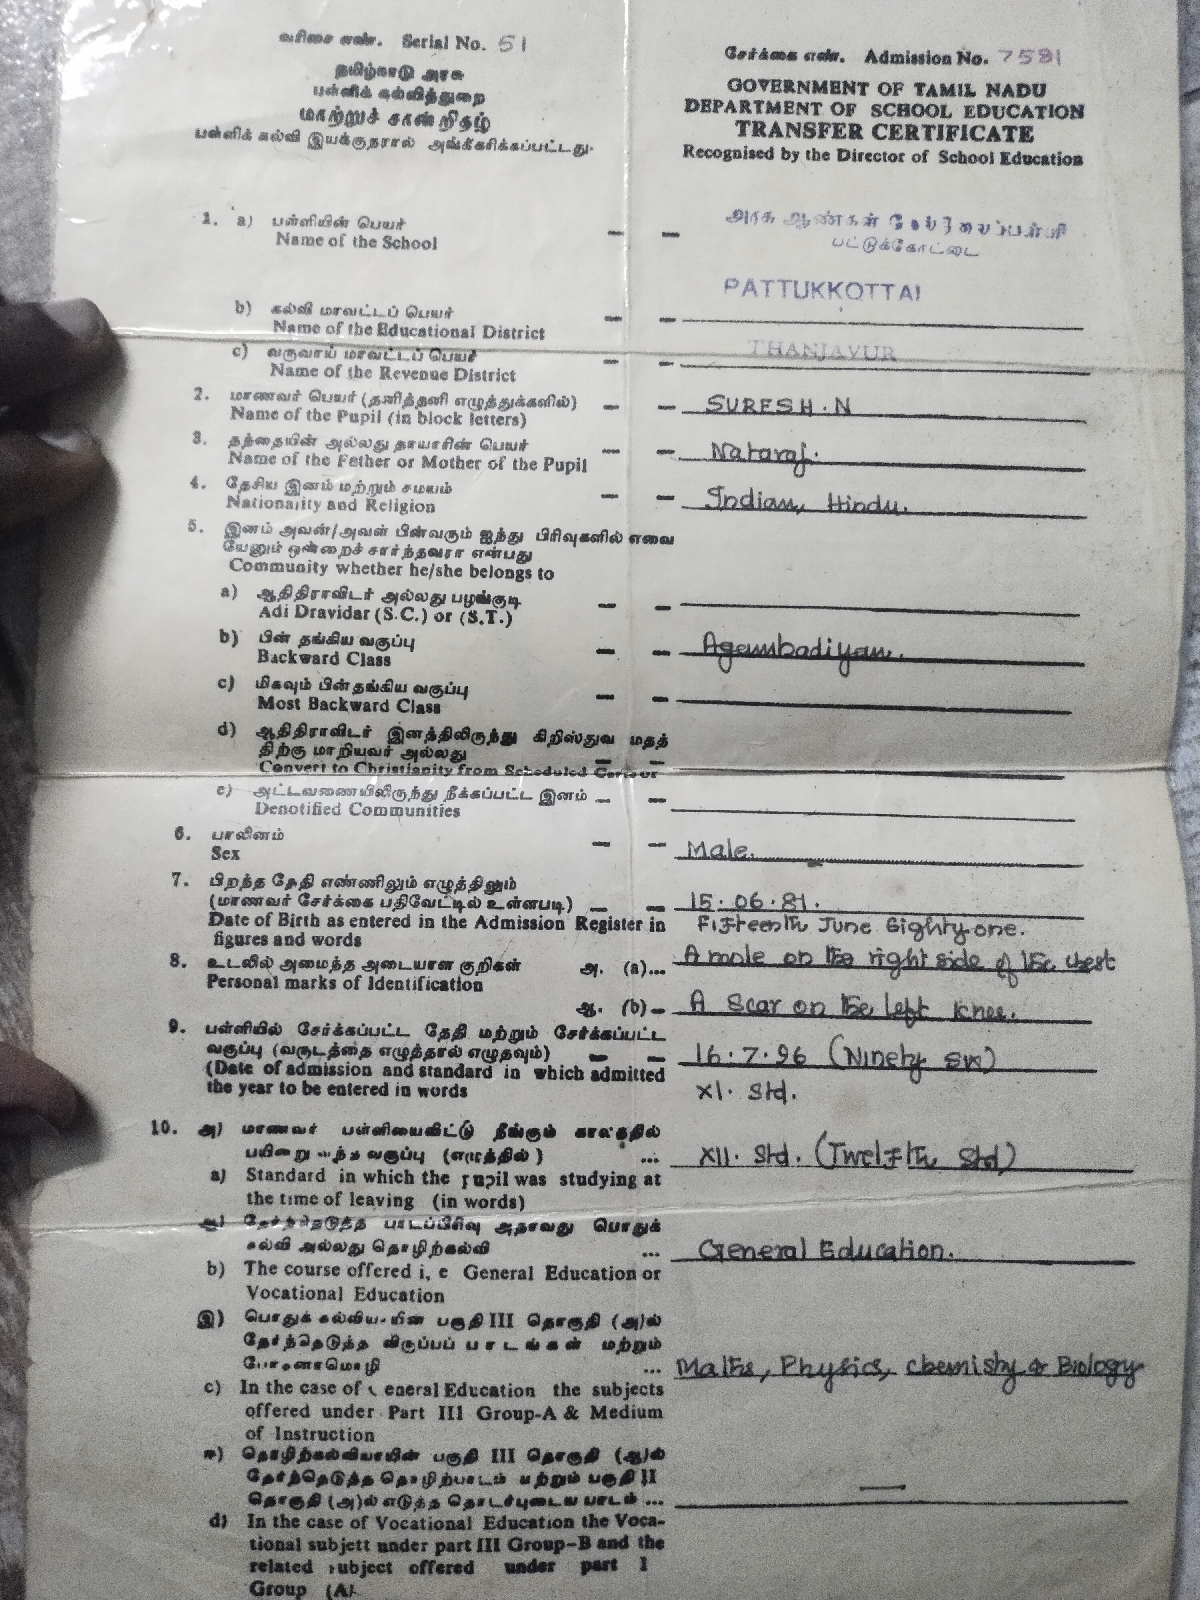 வரிசை எண். Serial No. 51
தமிழ்நாடு அரசு
பள்ளிக் கல்வித்துறை
மாற்றுச் சான்றிதழ்
பள்ளிக் கல்வி இயக்குநரால் அங்கீகரிக்கப்பட்டது.
சேர்க்கை எண். Admission No. 7581
GOVERNMENT OF TAMIL NADU
DEPARTMENT OF SCHOOL EDUCATION
TRANSFER CERTIFICATE
Recognised by the Director of School Education
1. a) பள்ளியின் பெயர்
Name of the School - -
அரசு ஆண்கள்
பட்டுக்கோட்டை
b) கல்வி மாவட்டப் பெயர்
Name of the Educational District - - PATTUKKOTTAI
c) வருவாய் மாவட்டப் பெயர்
Name of the Revenue District - - THANJAVUR
2. மாணவர் பெயர் (தனித்தனி எழுத்துக்களில்)
Name of the Pupil (in block letters) - - SURESH. N
3. தந்தையின் அல்லது தாயாரின் பெயர்
Name of the Father or Mother of the Pupil - - Nataraj.
4. தேசிய இனம் மற்றும் சமயம்
Nationality and Religion - - Indian, Hindu.
5. இனம் அவன்/அவள் பின்வரும் ஐந்து பிரிவுகளில் எவை
யேனும் ஒன்றைச் சார்ந்தவரா என்பது
Community whether he/she belongs to
a) ஆதிதிராவிடர் அல்லது பழங்குடி
Adi Dravidar (S.C.) or (S.T.) - -
b) பின் தங்கிய வகுப்பு
Backward Class - - Agambadiyan.
c) மிகவும் பின்தங்கிய வகுப்பு
Most Backward Class - -
d) ஆதிதிராவிடர் இனத்திலிருந்து கிறிஸ்துவ மதத்
திற்கு மாறியவர் அல்லது
Convert to Christianity from Scheduled Caste or
e) அட்டவணையிலிருந்து நீக்கப்பட்ட இனம் - -
Denotified Communities
6. பாலினம்
Sex - - Male.
7. பிறந்த தேதி எண்ணிலும் எழுத்திலும்
(மாணவர் சேர்க்கை பதிவேட்டில் உள்ளபடி) - - 15.06.81.
Date of Birth as entered in the Admission Register in
figures and words
Fifteenth June Eighty one.
8. உடலில் அமைந்த அடையாள குறிகள் அ. (a)... A mole on the right side of the chest
Personal marks of Identification
ஆ. (b) - A Scar on the left knee.
9. பள்ளியில் சேர்க்கப்பட்ட தேதி மற்றும் சேர்க்கப்பட்ட
வகுப்பு (வருடத்தை எழுத்தால் எழுதவும்) - - 16.7.96 (Ninety six)
(Date of admission and standard in which admitted
the year to be entered in words
XI. Std.
10. அ) மாணவர் பள்ளியைவிட்டு நீங்கும் காலத்தில்
பயின்று வந்த வகுப்பு (எழுத்தில்) ... XII. Std. (Twelfth Std)
a) Standard in which the pupil was studying at
the time of leaving (in words)
ஆ) தேர்ந்தெடுத்த பாடப்பிரிவு அதாவது பொதுக்
கல்வி அல்லது தொழிற்கல்வி ... General Education.
b) The course offered i, e General Education or
Vocational Education
இ) பொதுக் கல்வியின் பகுதி III தொகுதி (அ)ல்
தேர்ந்தெடுத்த விருப்பப் பாடங்கள் மற்றும்
போதனாமொழி ... Maths, Physics, Chemistry & Biology
c) In the case of General Education the subjects
offered under Part III Group-A & Medium
of Instruction
ஈ) தொழிற்கல்வியாயின் பகுதி III தொகுதி (ஆ)ல்
தேர்ந்தெடுத்த தொழிற்பாடம் மற்றும் பகுதி II
தொகுதி (அ)ல் எடுத்த தொடர்புடைய பாடம் ... —
d) In the case of Vocational Education the Voca-
tional subjett under part III Group-B and the
related subject offered under part I
Group (A)